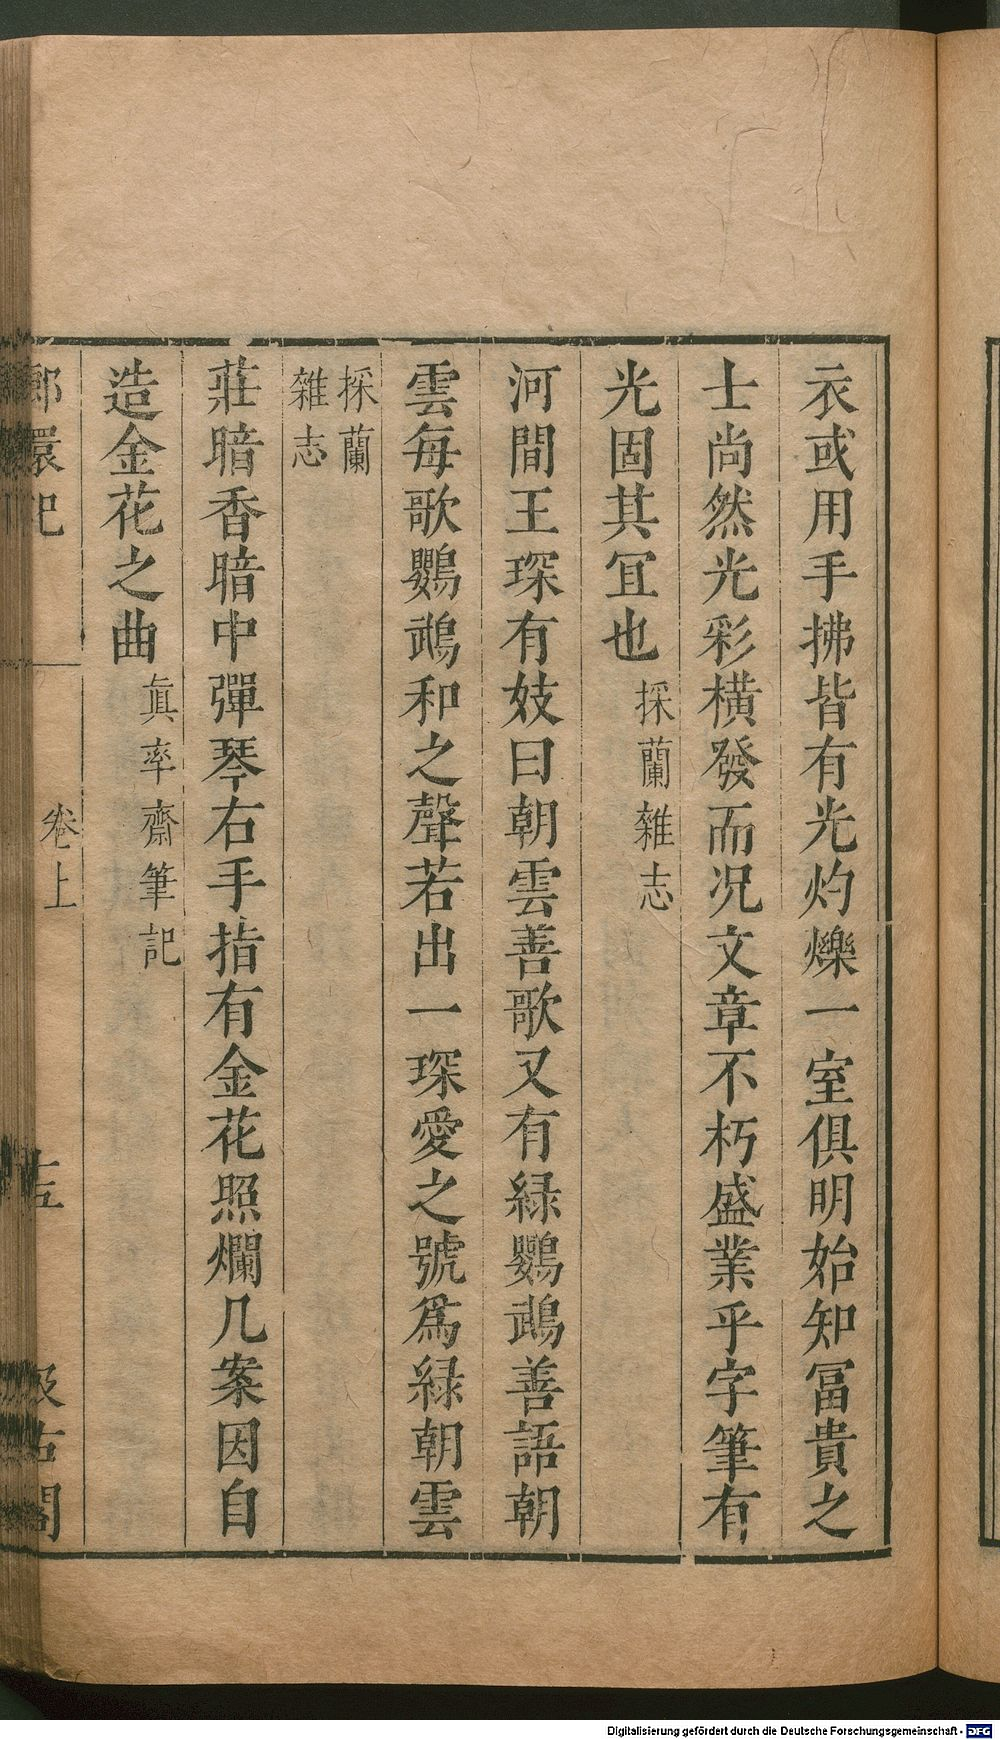 衣或用手拂皆有光灼爍一室俱明始知冨貴之
士尚然光彩橫發而况文章不朽盛業乎字筆有
光固其冝也採蘭雜志
河間王琛有妓曰朝雲善歌又有綠鸚鵡善語朝
雲每歌鸚鵡和之聲若出一琛愛之號爲綠朝雲
採蘭
雜志
莊暗香暗中彈琴右手指有金花照爛几案因自
造金花之曲眞率齋筆記
環記
卷上
十五
汲古閣
Digitalisierung gefördert durch die Deutsche Forschungsgemeinschaft - DFG